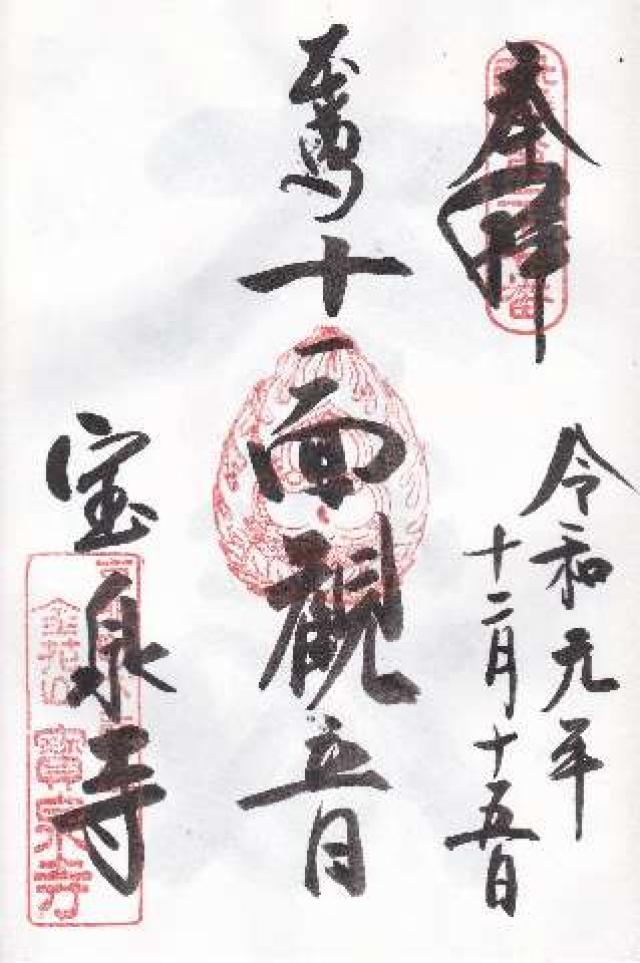 奉拝
令和元年
十二月十五日
十一面観音
宝泉寺
金花山
寶泉寺